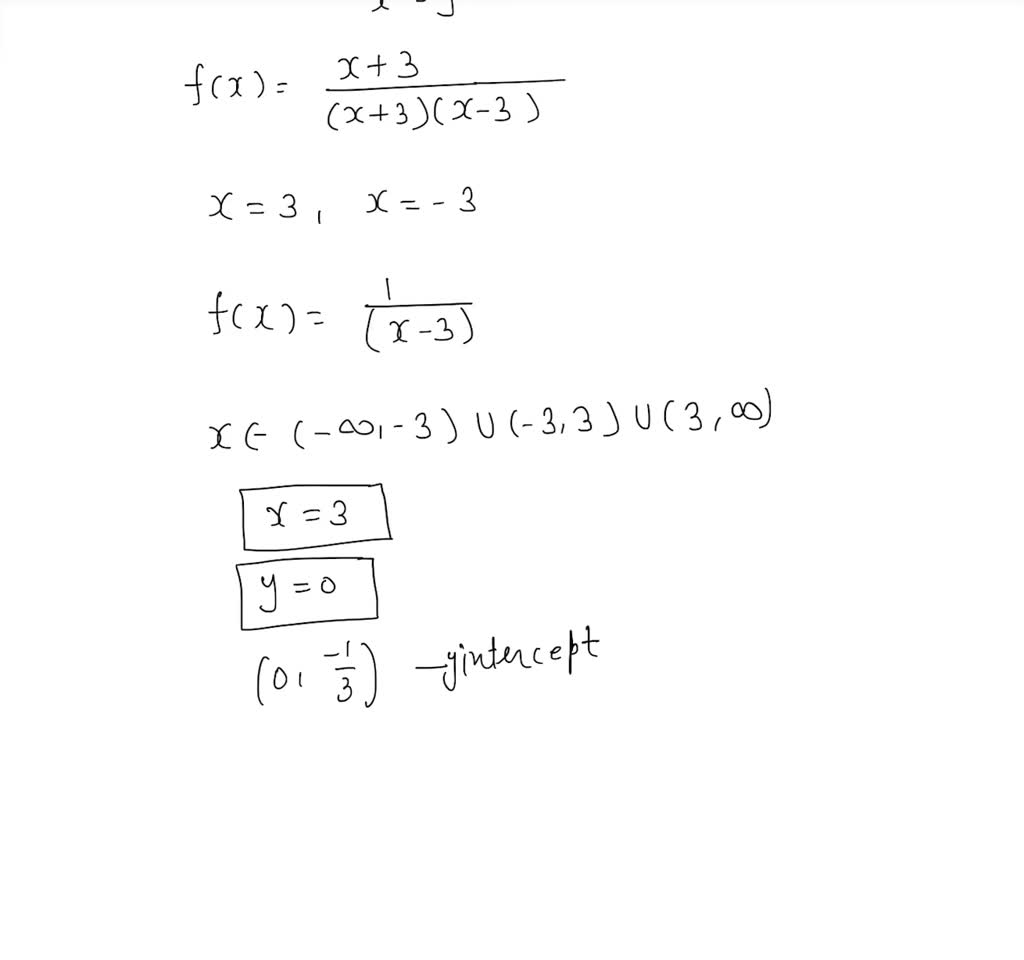 f(x) = x+3 / (x+3)(x-3)
x = 3, x = -3
f(x) = 1 / (x-3)
x ∈ (-∞, -3) ∪ (-3, 3) ∪ (3, ∞)
x = 3
y = 0
(0, -1/3) - yintercept